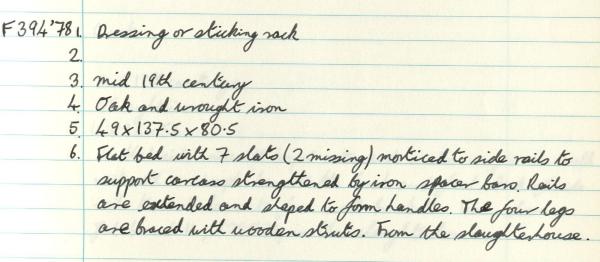 F394'78 1. Dressing or sticking rack
2.
3. mid 19th century
4. Oak and wrought iron
5. 49x137.5x80.5
6. Flat bed with 7 slats (2 missing) morticed to side rails to
support carcass strengthened by iron spacer bars. Rails
are extended and shaped to form handles. The four legs
are braced with wooden struts. From the slaughterhouse.